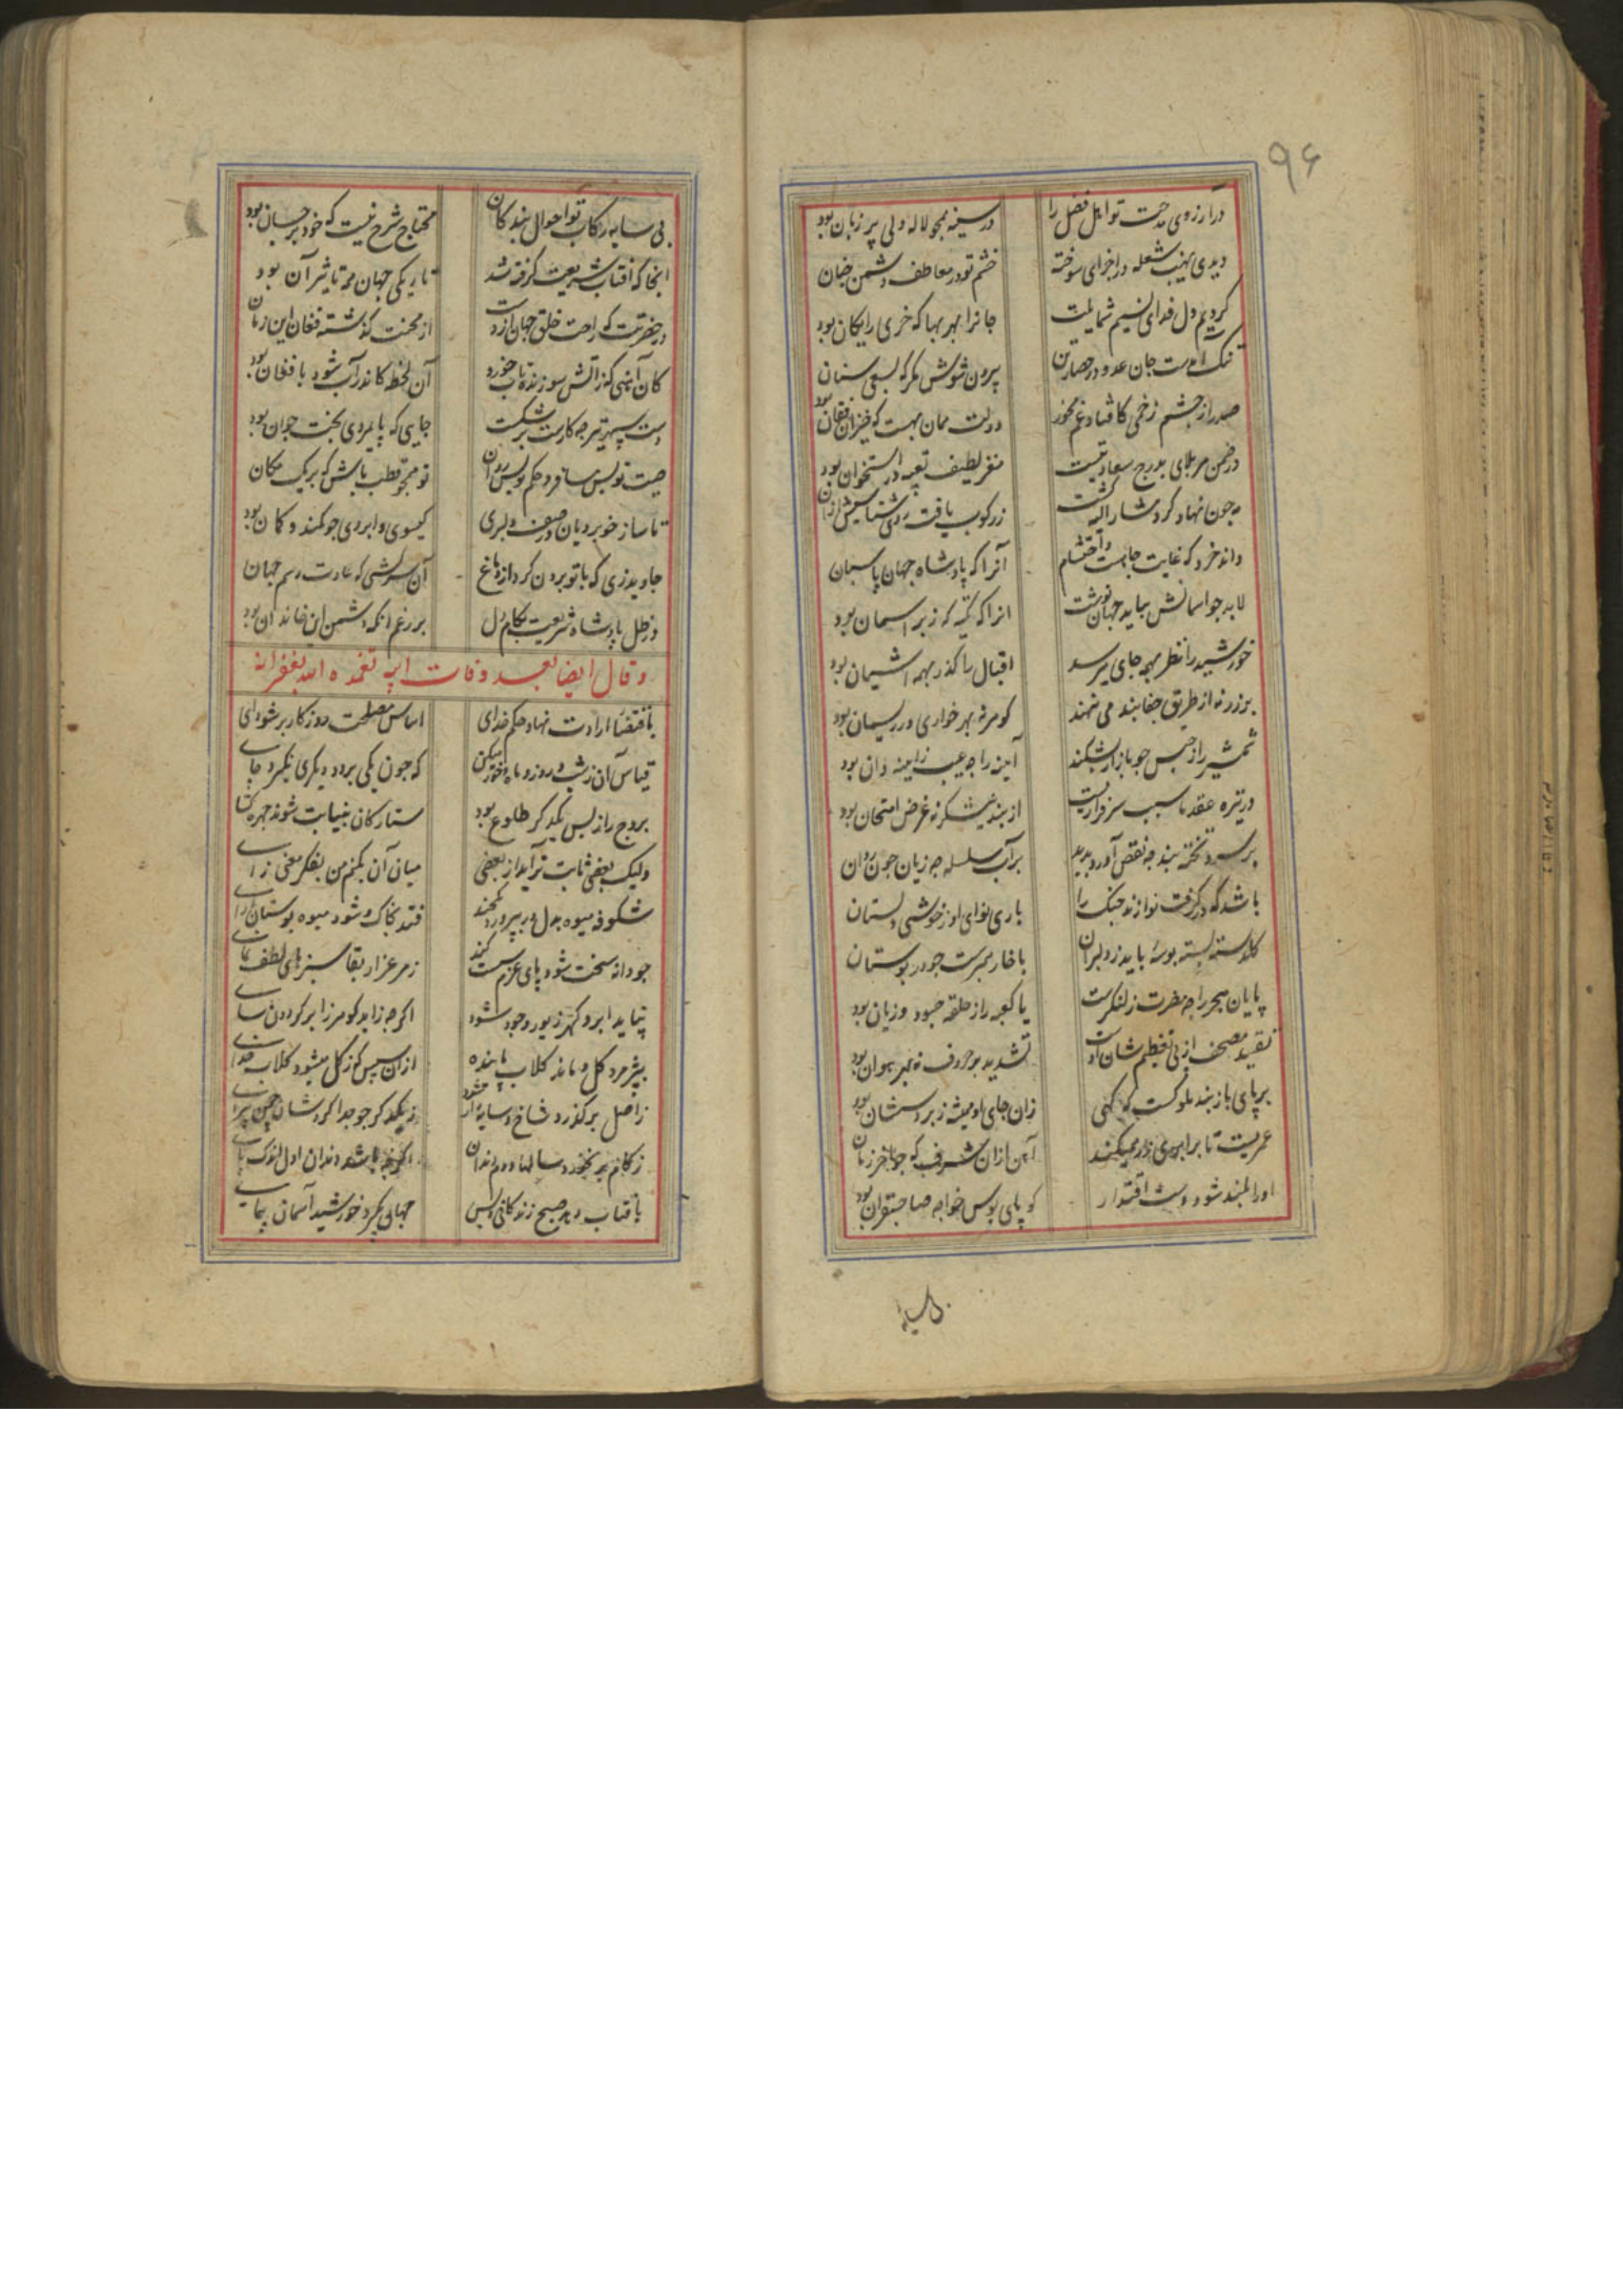 ۹۶
در آرزوی مدحت تو اهل فضل را در سینه همچو لاله دلی پر زبان بود
دیدی نهیب شعله در اجزای سوخته خشم تو در معاطف دشمن چنان بود
کردیم دل فدای نسیم شمایلت جانرا بهر بها که خری رایکان بود
تنک آمدست جان عدو در حصار تن بیرون شوش مکر که بسعی سنان بود
صدرا ز چشم زخمی کافتاد غم مخور دولت همان بهست که خیزان فتان بود
در ضمن هر بلای بدرج سعادتیست مغز لطیف تعبیه در استخوان بود
مه چون نهاد کرد مشار الیه کشت زر کوب یافت
داند خرد که غایت جاهست و احتشام آنرا که پادشاه جهان پاسبان بود
لابد جو آسمانش بباید جهان نوشت انرا که تکیه که زبر آسمان بود
خورشید را نظر بهمه جای میرسد اقبال را کذر بهمه آشیان بود
بر زر نه از طریق جفا بند می نهند کوهر نه بهر خواری در ریسمان بود
شمشیر را ز حبس جو بازار بشکند آینه را چه عیب ز آینه دان بود
در نیزه عقدها سبب سرفرازیست از بند نیشکر نه غرض امتحان بود
بر سرو تخته بند چه نقص آورد پدید بر آب سلسله چه زیان چون روان بود
باشد که در کرفت نوازند چنک را باری نوای او ز خوشی دلستان بود
کلدسته بسته بوسه باید ز دلبران با خار همبرست جو در بوستان بود
پایان بحر را چه مضرت ز لنکرست یا کعبه را ز حلقه چه سود و زیان بود
تقیید مصحف از پی تعظیم شان اوست تشدید بر حروف نه بهر هوان بود
بر پای باز بند ملوکست که کهی زان جای او همیشه زبر دستشان بود
عمریست تا برابری زر همیکند آهن ازان شرف که جو تا خر زمان
او را بلند شود دست اقتدار کو پای بوس خواجه صاحبقران بود
بی سایه
بی سایه رکاب تو احوال بندکان محتاج شرح نیست که خود بر چسان بود
انجا که افتاب شریعت کرفته شد تاریکی جهان همه تاثیر آن بود
در حضرتت که راحت خلق جهان ازوست از محنت کذشته فغان این زمان
کان آهنی که ز آتش سوزنده تاب خورد آن لحظه کاندر آب شود با فغان بود
دست سپهر تیر چه کارت بر شکست جایی که پایمردی بخت جوان بود
صیت تو بس مسافر و حکم تو بس روان تو همچو قطب باش که بر یک مکان
تا ساز خوبرویان در صف دلبری کیسوی و ابروی جو کمند و کمان بود
جاوید زی که با تو برون کرد از دماغ آن سرکشی که عادت و رسم جهان
در ظل پادشاه شریعت بکام دل بر رغم انکه دشمن این خاندان بود
و قال ایضا بعد وفات ابیه تغمده الله بغفرانه
باقتضا ارادت نهاد حکم خدای اساس مصلحت روزکار بر شو و آی
قیاس آن ز شب و روز و ماه و خور میکن که چون یکی برود دیکری بکیرد جای
بروج را ز پس یکدکر طلوع بود ستارکان بنیابت شوند چهره کشای
ولیک بعضی ثابت تر آید از بعضی میان آن بکنم من بفکر معنی زای
شکوفه میوه بدل در بپرورد فتد بخاک و شود میوه بوستان آرای
جو دانه سخت شود پای عزم سست کند ز مرغزار بقا سبزهای لطف نمای
نپاید ابر و کهر زیور وجود شود اکر چه زاید کوهر ز ابر کردون سای
بپژمرد کل و ماند کلاب پاینده ازان سپس که ز کل میشود کلاب جدای
ز اصل بر کذرد شاخ و سایه ز یکدکر جو جدا کردشان چمن پیرای
ز کام بر نخورد سالها دوم دندان اکر چه باشد دندان اول اندک پای
بآفتاب دهد صبح زندکانی و بس جهان بکیرد خورشید آسمان پیمای